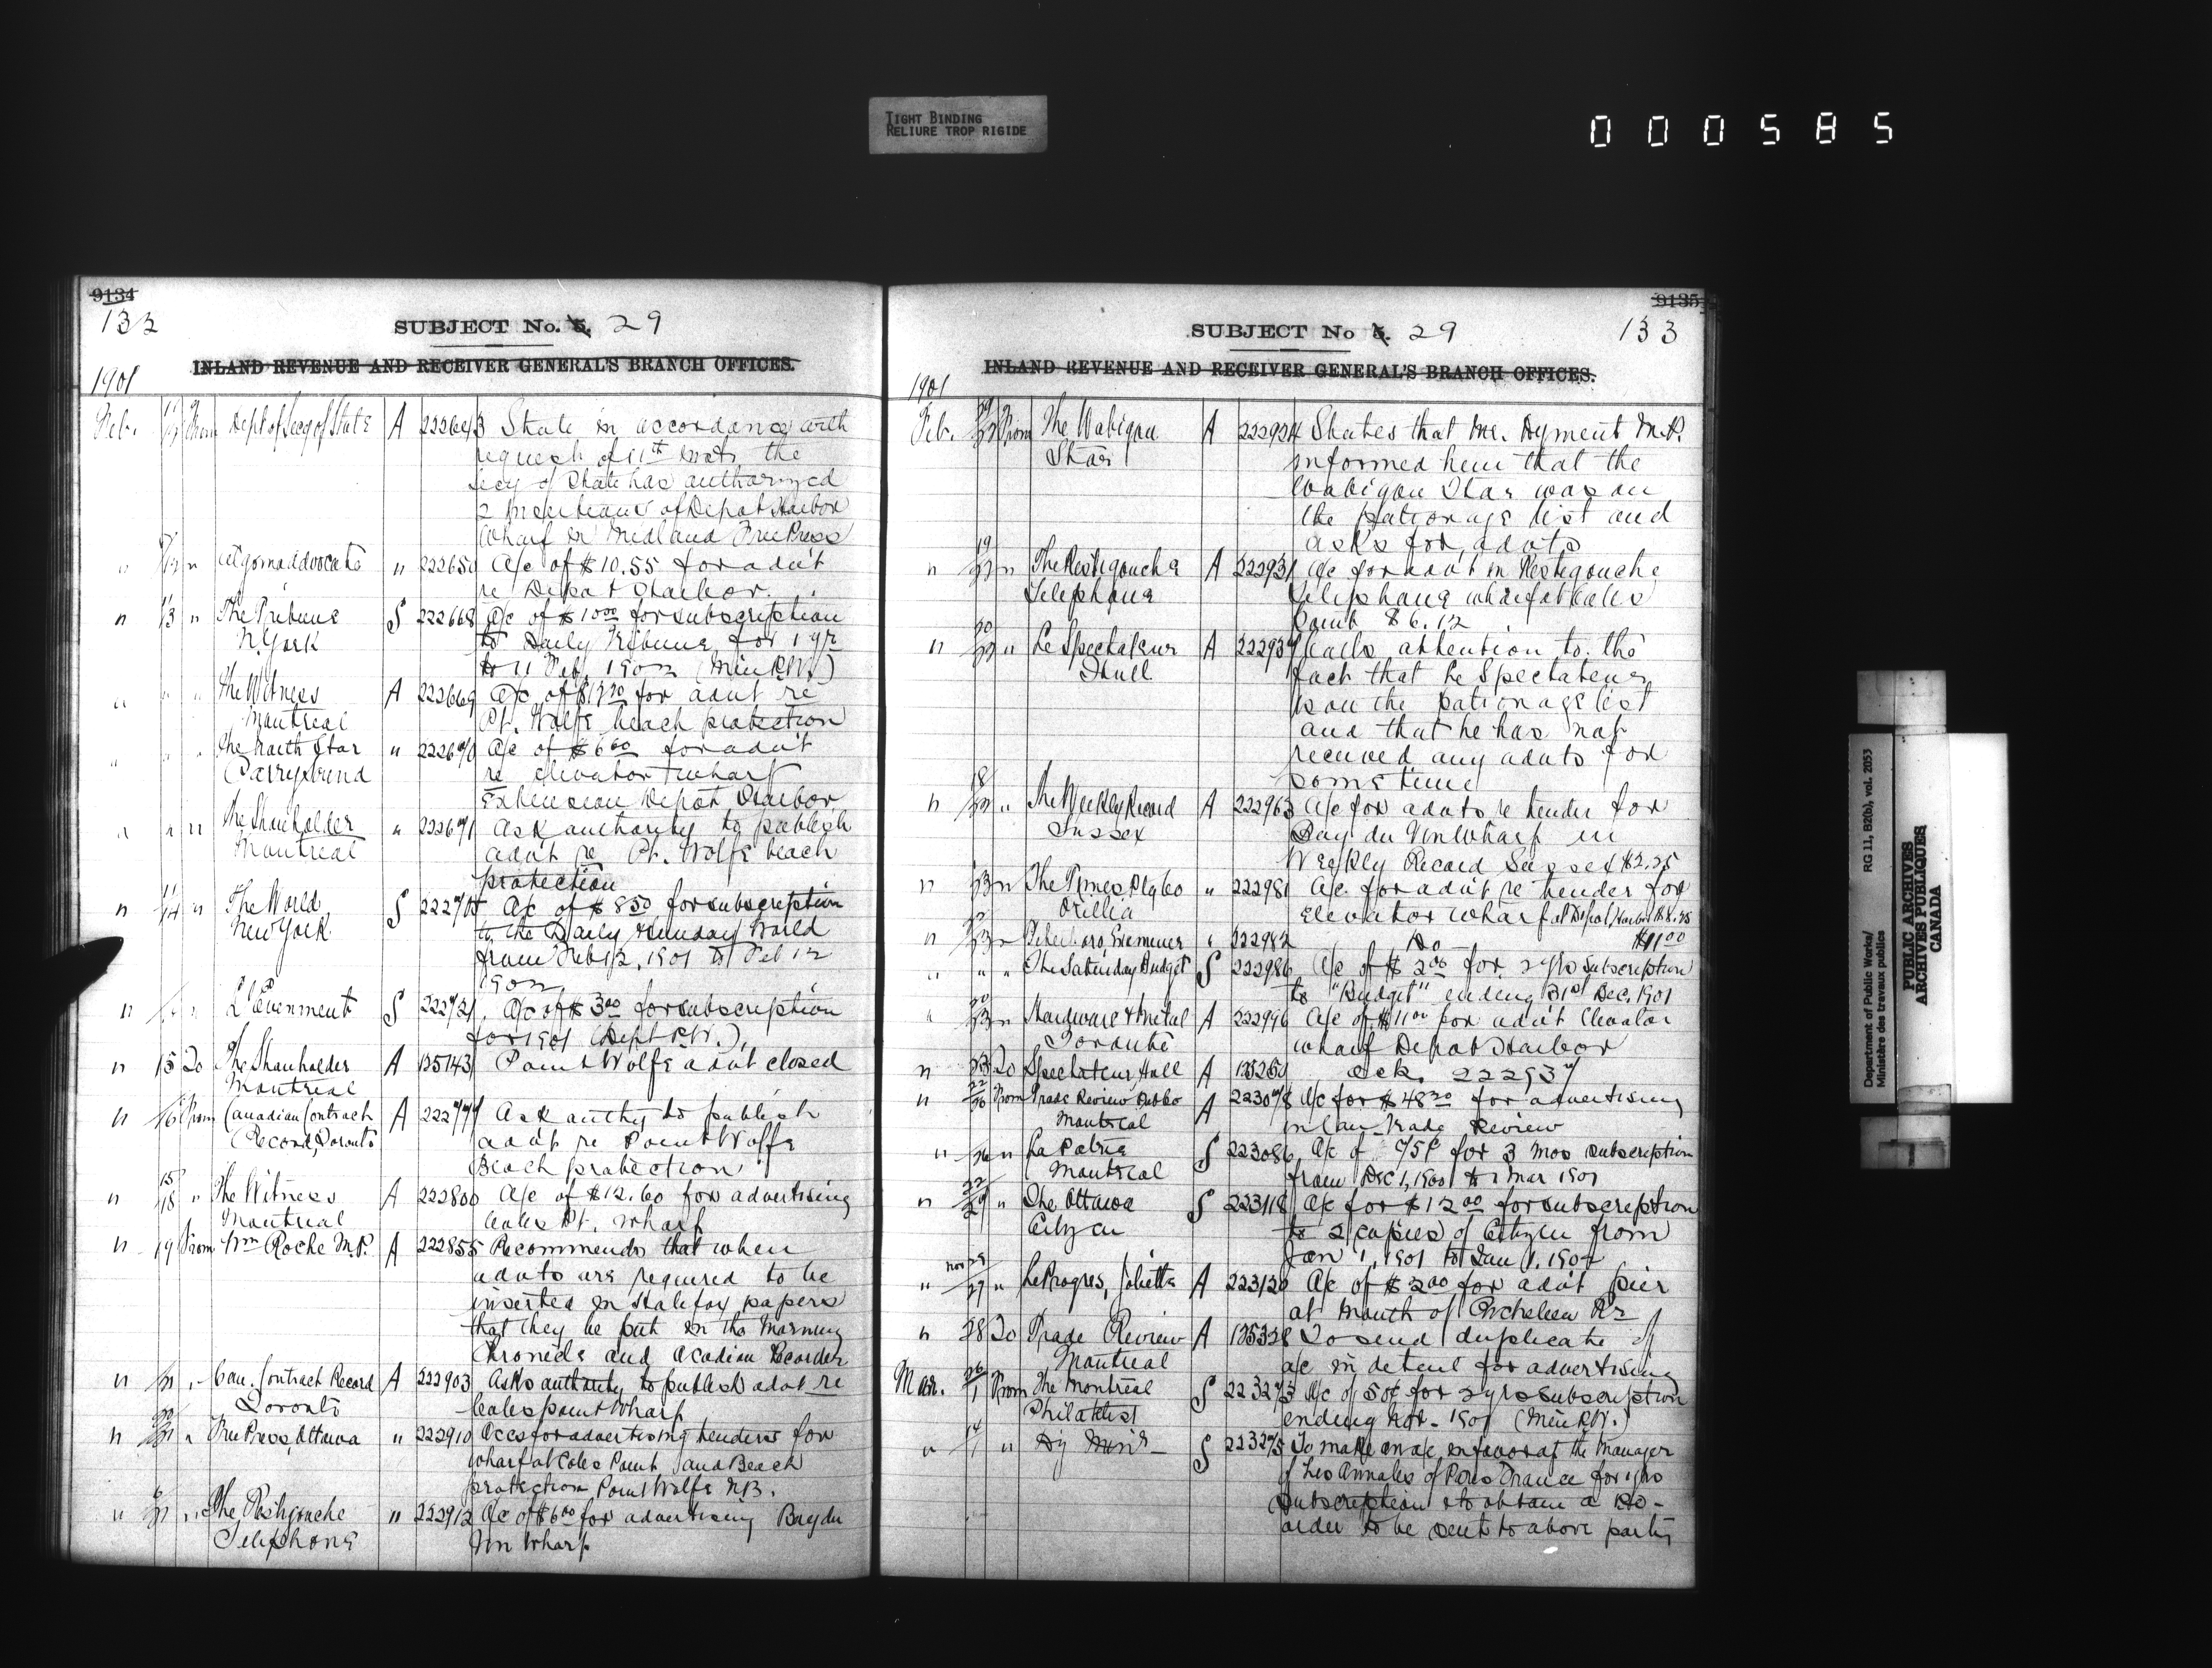 TIGHT BINDING
RELIURE TROP RIGIDE
000585
9134
132
SUBJECT No. 5. 29
INLAND REVENUE AND RECEIVER GENERAL'S BRANCH OFFICES.
1901
Feb. From Dept of Secy of State A 222643 State in accordance with
request of 11th inst the
Secy of State has authorized
2 insertions of Depot Harbor
Wharf in Midland Free Press
" " Algoma Advocate " 222659 A/c of $10.55 for advt
re Depot Harbor.
" 13 " The Tribune S 222668 A/c of $10.00 for subscription
N. York to Daily Tribune for 1 yr
to 11 Feb. 1902 (Min P.W.)
" " " The Witness A 222669 A/c of for advt re
Montreal Pt. Wolfe beach protection
" " " The North Star " 222670 A/c of $6.00 for advt
Parry Sound re elevator & wharf
Extension Depot Harbor
" " " The Shareholder " 222671 Ask authority to publish
Montreal advt re Pt. Wolfe beach
protection
" 14 " The World S 222705 A/c of $8.50 for subscription
New York. to the Daily & Sunday World
from Feb 12, 1901 to Feb 12
1902
" " L'Evenment S 222721 A/c of $3.00 for subscription
for 1901 (Dept P.W.),
" 15 To The Shareholder A 135143 Point Wolfe advt closed
Montreal
" 16 From Canadian Contract A 222777 Ask authy to publish
Record, Toronto advt re Point Wolfe
Beach protection
" 15/18 " The Witness A 222800 A/c of $12.60 for advertising
Montreal Coles Pt. Wharf
" 19 From Wm Roche M.P. A 222855 Recommends that when
advts are required to be
inserted in Halifax papers
that they be put in the Morning
Chronicle and Acadian Recorder
" " Can. Contract Record A 222903 Asks authority to publish advt re
Toronto Coles point Wharf
" " Free Press, Ottawa " 222910 Accs for advertising tenders for
wharf at Coles Point and Beach
protection Point Wolfe N.B.
" " The Restigouche " 222912 A/c of $6.00 for advertising Bay du
Telephone Vin Wharf.
9135
SUBJECT No 5. 29
133
INLAND REVENUE AND RECEIVER GENERAL'S BRANCH OFFICES.
1901
Feb. From The Wabigon A 222924 States that Mr. Dyment M.P.
Star informed him that the
Wabigon Star was on
the patronage list and
asks for advts
" 19 " The Restigouche A 222931 A/c for advt in Restigouche
Telephone Telephone wharf at Coles
Point $6.12
" 20 " Le Spectateur A 222937 Calls attention to the
Hull fact that Le Spectateur
is on the patronage list
and that he has not
received any advts for
sometime
" 18 " The Weekly Record A 222963 A/c for advts re tender for
Sussex Bay du Vin Wharf in
Weekly Record Sussex $2.25
" " The Times Ptg Co " 222981 A/c. for advt re tender for
Orillia Elevator wharf at Depot Harbor
" " Peterboro Examiner " 222982 Do $11.00
" " " The Saturday Budget S 222986 A/c of $2.00 for 2 yrs subscription
to "Budget" ending 31st Dec. 1901
" " Hardware & Metal A 222996 A/c of $11.00 for advt Elevator
Toronto wharf Depot Harbor
" 23 To Spectateur, Hull A 135259 Ack. 222937
" From Trade Review Pub Co A 223078 A/c for for advertising
Montreal in Can. Trade Review
" 26 " La Patrie S 223086 A/c of 75¢ for 3 mos subscription
Montreal from Dec 1, 1900 to 1 Mar 1901
" " The Ottawa S 223118 A/c for $12.00 for subscription
Citizen to 2 copies of Citizen from
Jan 1, 1901 to Jan 1, 1902
" 27 " Le Progres, Joliette A 223120 A/c of $2.00 for advt pier
at Mouth of Richelieu Rr
" 28 To Trade Review A 135328 To send duplicate of
Montreal a/c in detail for advertising
Mar. 26/1 From The Montreal S 223273 A/c of 50¢ for 2 yrs subscription
Philatelist ending 1901 (Min P.W.)
" " Dy Minr S 223275 To make an a/c in favor of the Manager
of Les Annales of Paris France for 1 yrs
subscription & to obtain a P.O.
order to be sent to above party
Department of Public Works/
Ministère des travaux publics
RG 11, B2(b), vol. 2053
PUBLIC ARCHIVES
ARCHIVES PUBLIQUES
CANADA